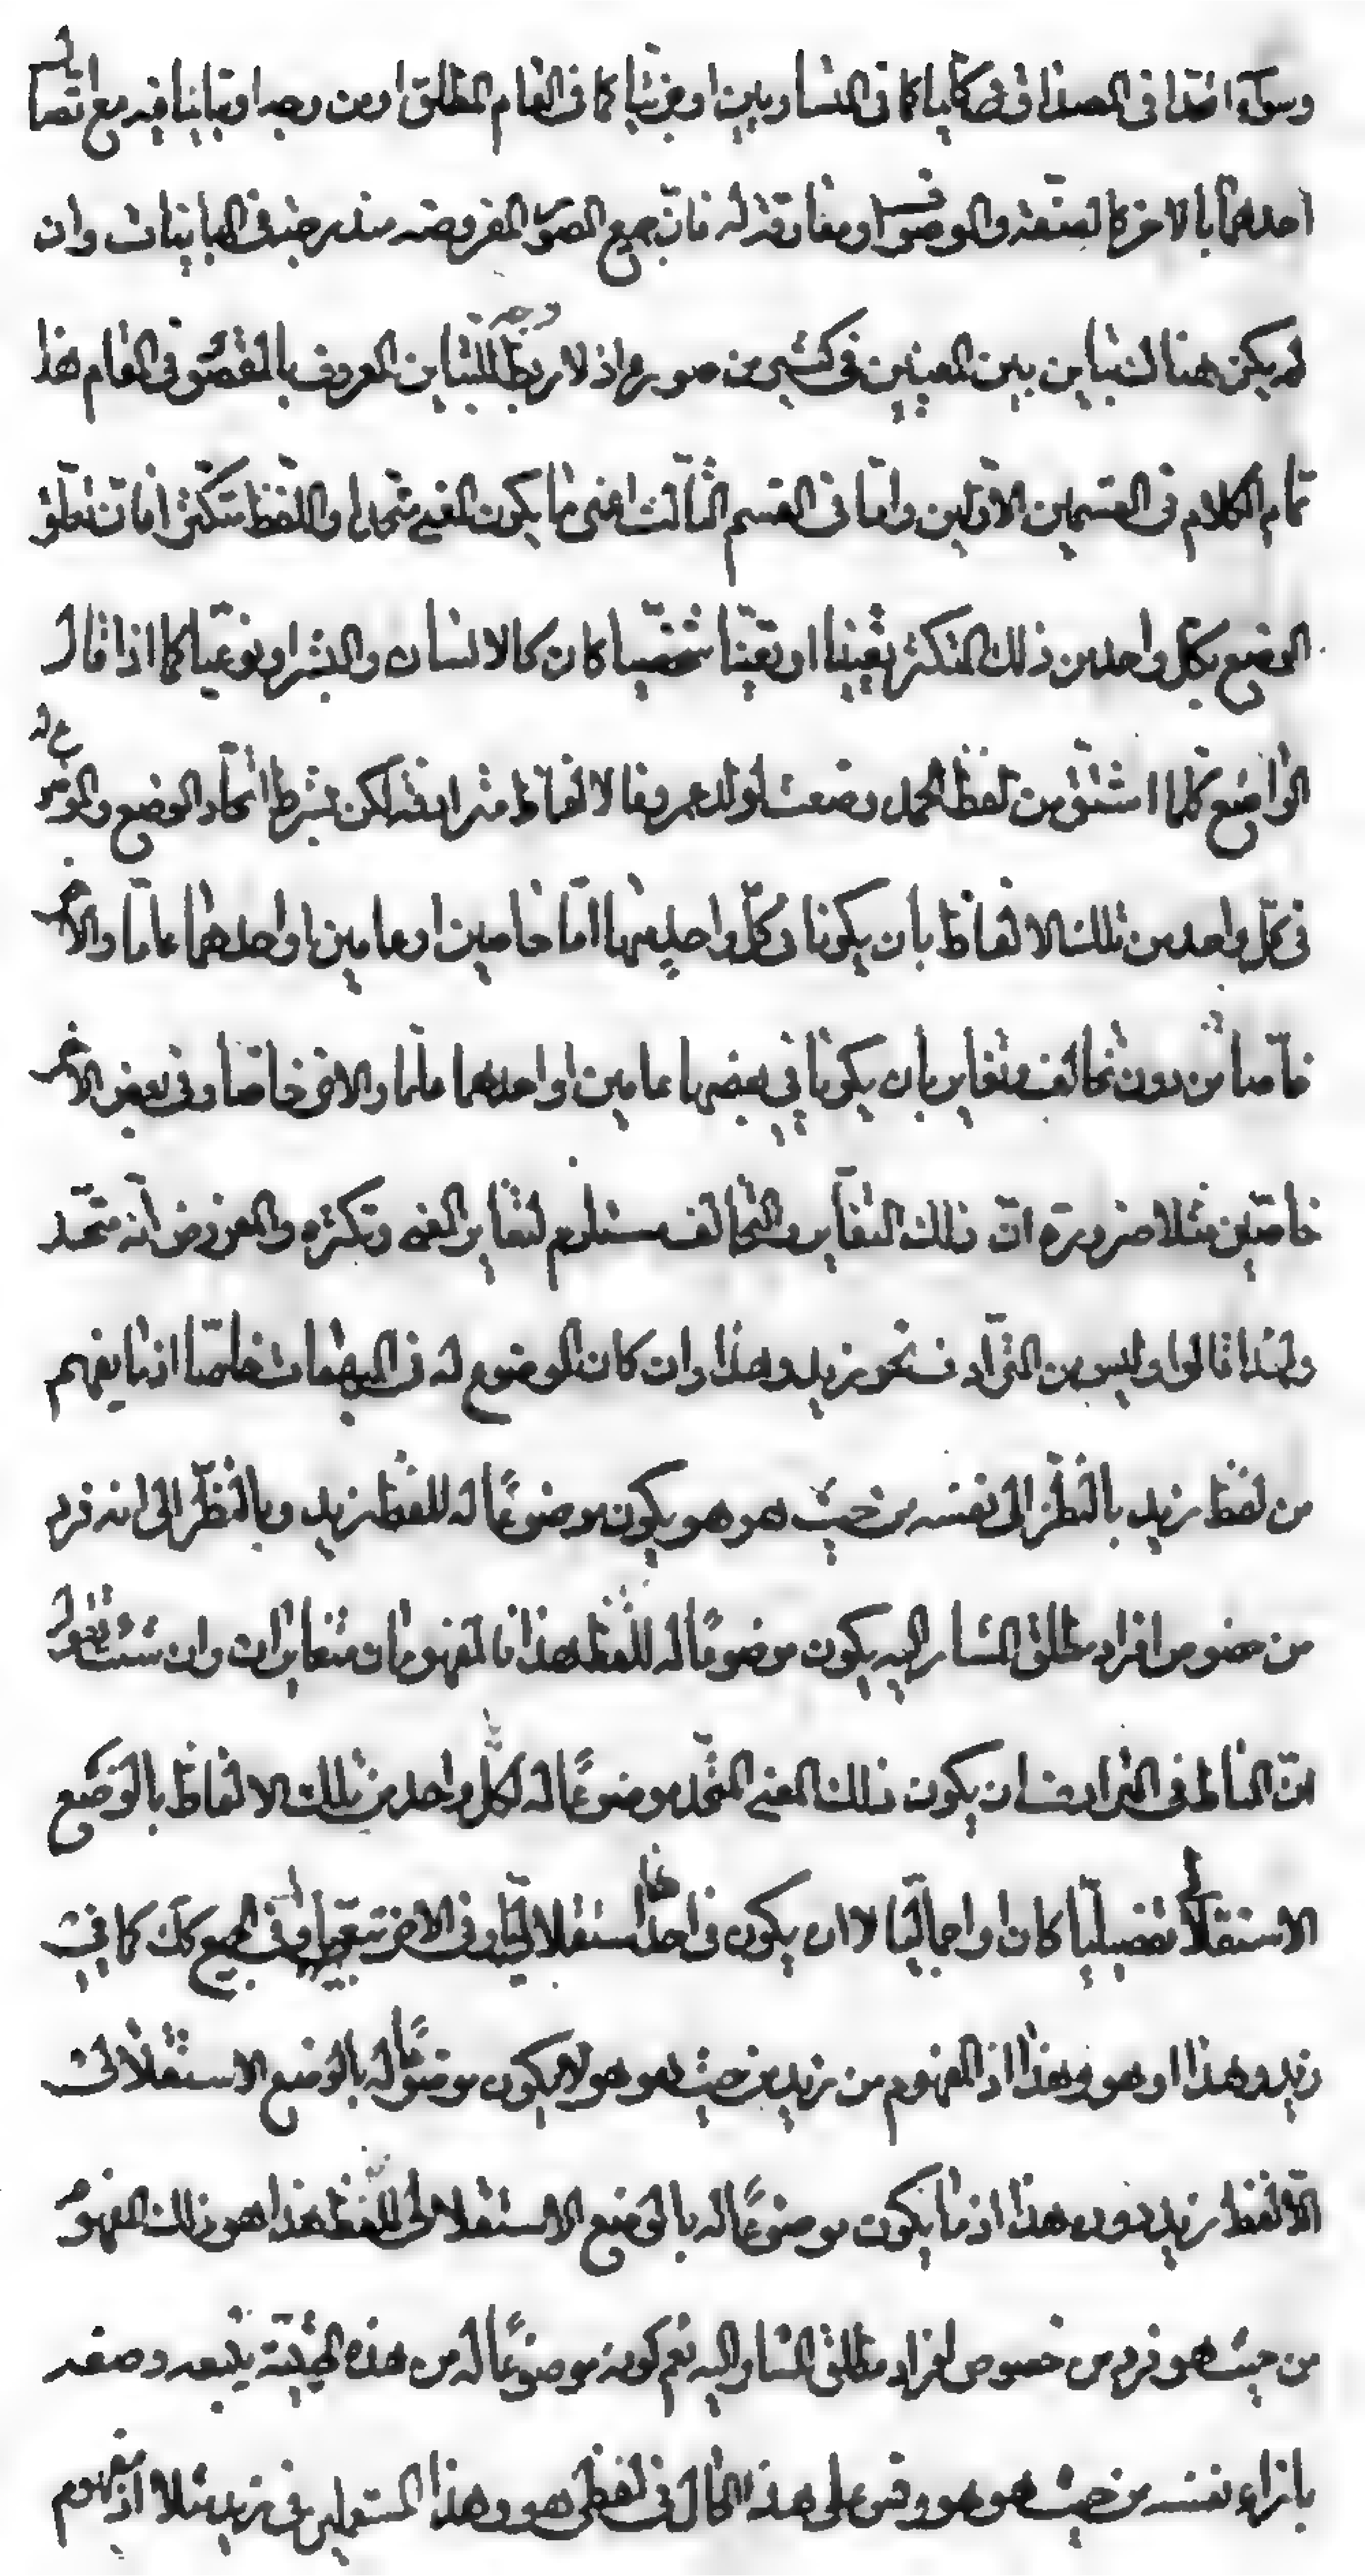 وسوآء اتحدا فى المصداق كليا كما فى المتساويين او جزئيا كما فى العام المطلق او من وجه او تباينا فيه مع اتصا
احدهما بالاخر كالصفة والموصو او مفارقة له فانّ جميع الصوَر المفروضه مندرجة فى المباينات وان
لم يكن هناك تباين بين المعنيين فى كثير من صوره اذ لا ربط للتباين المعروف بالمقصو فى المقام هذا
تمام الكلام فى القسمين الاوّلين وامّا فى القسم الثالث اعنى ما يكون المعنى متّحدا واللفظ متكثّرا فان تعلّق
الوضع بكل واحد من ذلك المتكثر تعيينا او تعيّنا شخصيّا كان كالانسان والبشر او نوعيّا كما اذا قال
الواضع كلما اشتق من لفظ الحمد وضعت لولد عمرو فالالفاظ مترادفة لكن بشرط اتحاد الوضع والموضوع له
فى كل واحد من تلك الالفاظ بان يكونا فى كلّ واحد منها امّا خاصين او عامين او احدهما عامّا والاخر
خاصّا من دون تخالف وتغاير بان يكونا فى بعضها عامين او احدهما عامّا والاخر خاصّا وفى بعض الاخر
خاصّين مثلا ضرورة انّ ذلك التغاير والتخالف مستلزم لتغاير المعنى وتكثره والمفروض انّه متّحد
ولهذا قالوا وليس من الترادف نحو زيد وهذا وان كان الموضوع له فى المبهمات خاصّا اذ ما يفهم
من لفظ زيد بالنظر الى نفسه من حيث هو هو يكون موضوعًا له للفظ زيد وبالنظر الى انه فرد
من خصوص افراد مطلق المشار اليه يكون موضوعًا له للفظ هذا فالمفهومان متغايران وان شئت فقل
انّ المناط فى الترادف ان يكون ذلك المعنى المتّحد موضوعًا له لكل واحد من تلك الالفاظ بالوضع
الاستقلالى تفصيليّا كان او اجماليّا لا ان يكون فى احدها استقلاليّا وفى الاخر تبعيّا او فى الجميع كك كما فى
زيد وهذا او هو وهذا اذ المفهوم من زيد من حيث هو هو لا يكون موضوعًا له بالوضع الاستقلالى
الّا لفظ زيد دون هذا اذ ما يكون موضوعًا له بالوضع الاستقلالى للفظ هذا هو ذلك المفهوم
من حيث هو فرد من خصوص افراد مطلق المشار اليه نعم كونه موضوعًا له من هذه الحيثيّة يتبعه وضعه
بازاء نفسه من حيث هو هو وقس على هذا الحال فى لفظى هو وهذا المستعملين فى زيد مثلا اذ مفهوم